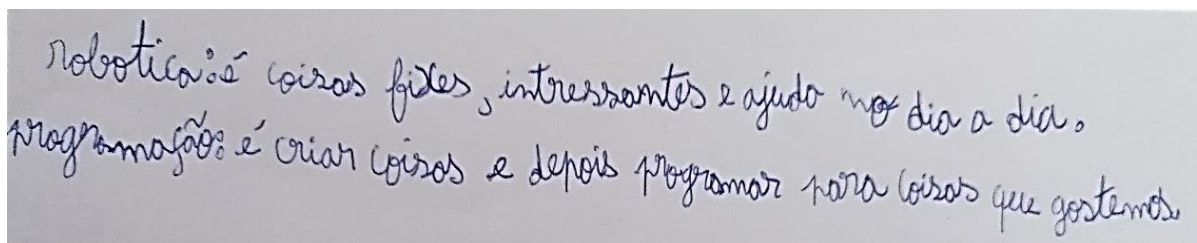 robotica: é coisas fixes, intressantes e ajuda no dia a dia.
programação: é criar coisas e depois programar para coisas que gostemos.